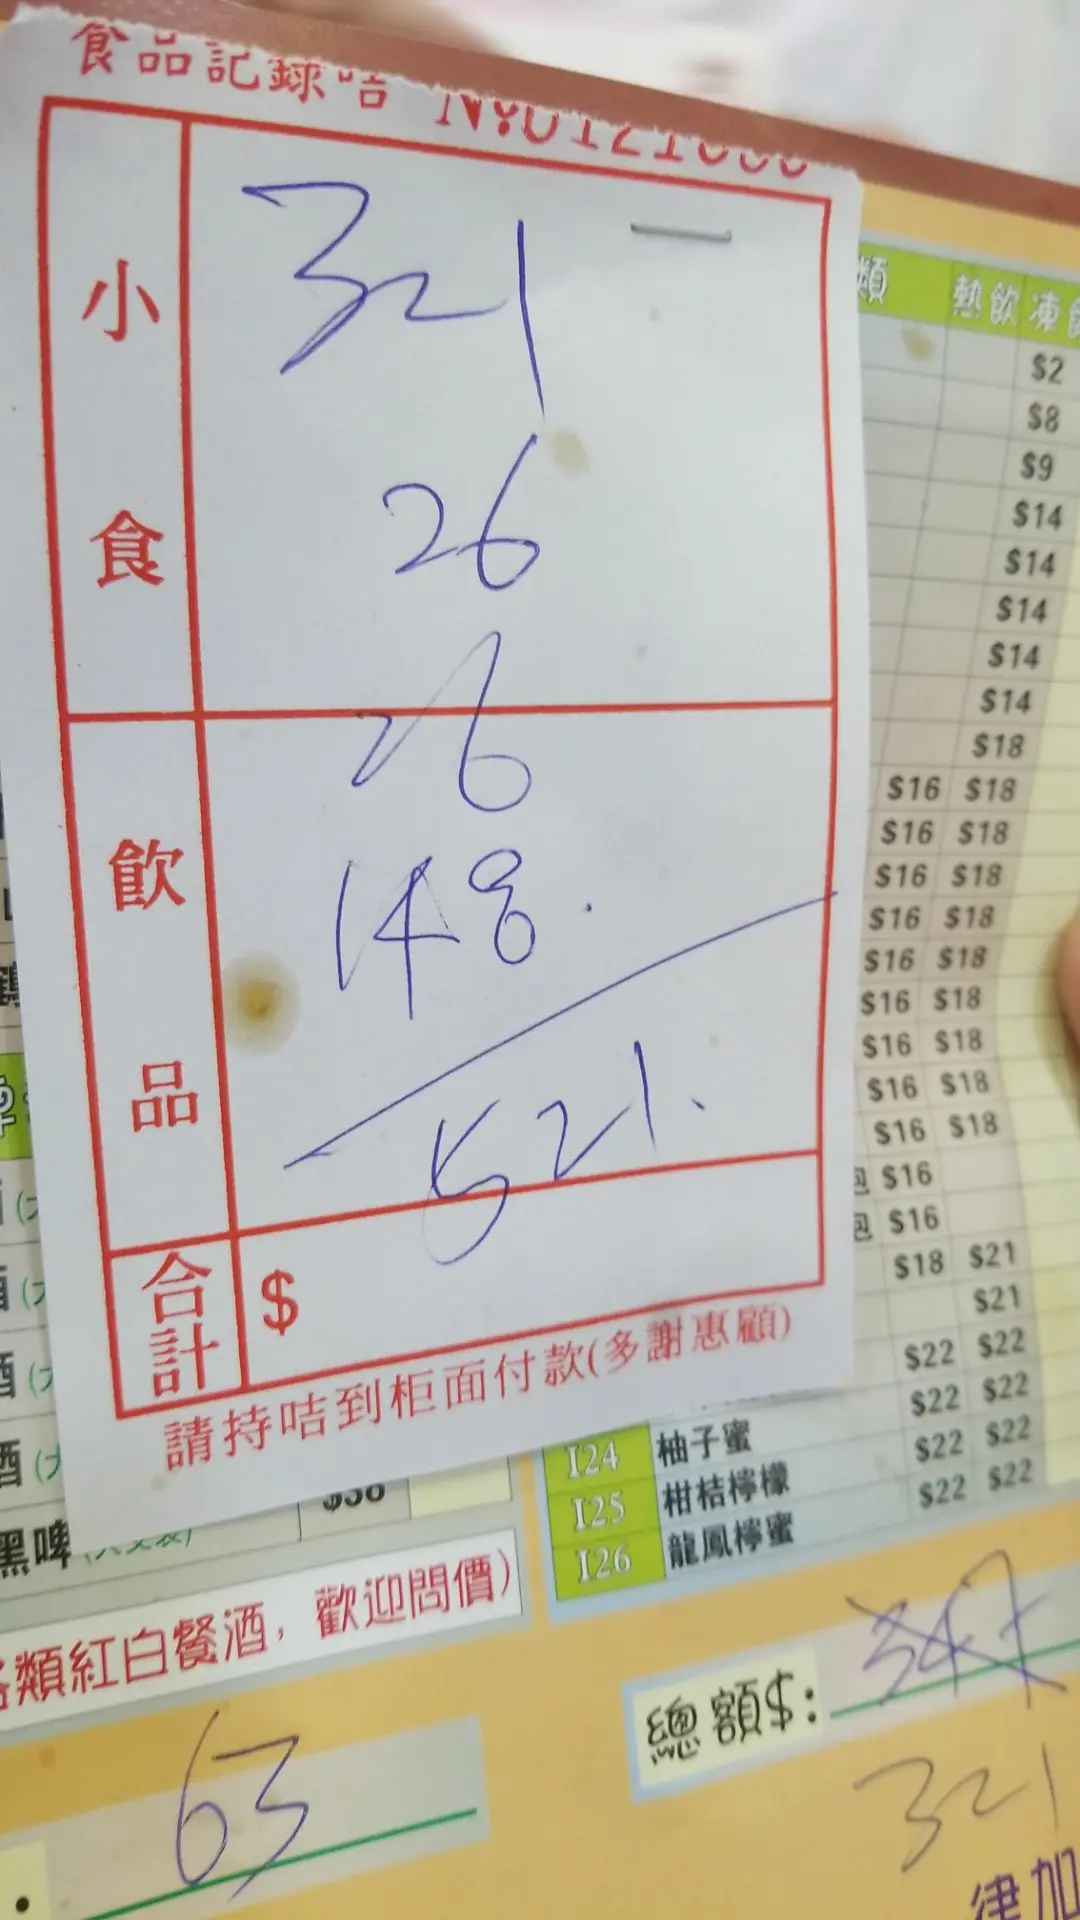 食品記錄咭
小食
321
26
26
飲品
148.
521.
合計 $
請持咭到柜面付款(多謝惠顧)
類 熱飲 凍飲
$2
$8
$9
$14
$14
$14
$14
$14
$18
$16 $18
$16 $18
$16 $18
$16 $18
$16 $18
$16 $18
$16 $18
$16 $18
$16 $18
包 $16
包 $16
$18 $21
$21
$22 $22
$22 $22
I24 柚子蜜 $22 $22
I25 柑桔檸檬 $22 $22
I26 龍鳳檸蜜
酒
酒
黑啤 $38
各類紅白餐酒，歡迎問價)
63
總額$:
321
律加